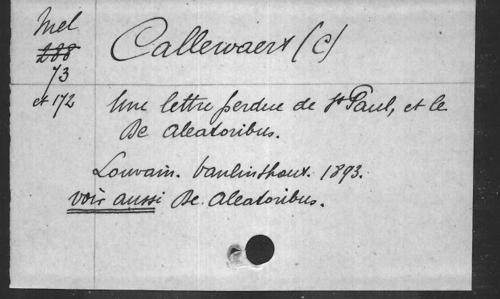 Mel
288
73
et 172
Callewaert (C)
Une lettre perdue de St Paul, et le
De Aleatoribus.
Louvain. Vanlinthout. 1893.
voir aussi De Aleatoribus.